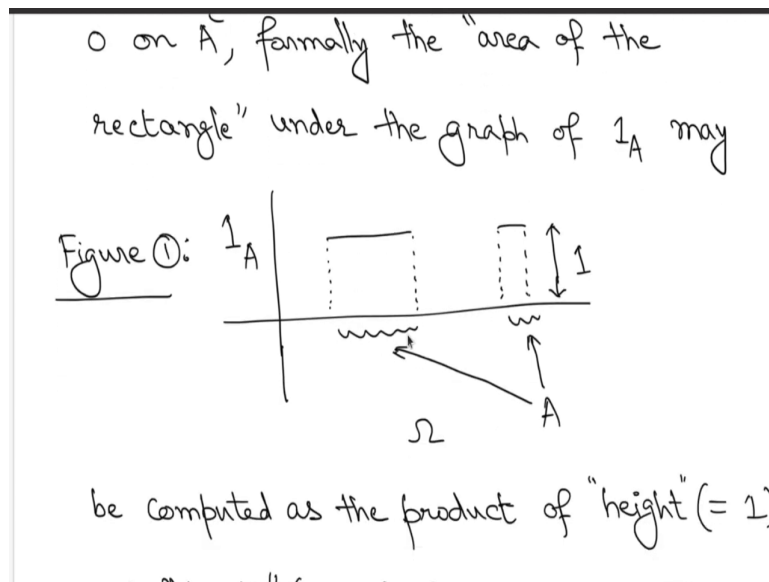 0 on Aᶜ, formally the "area of the
rectangle" under the graph of 1_A may
Figure ①: 1_A
1
A
Ω
be computed as the product of "height" (= 1)